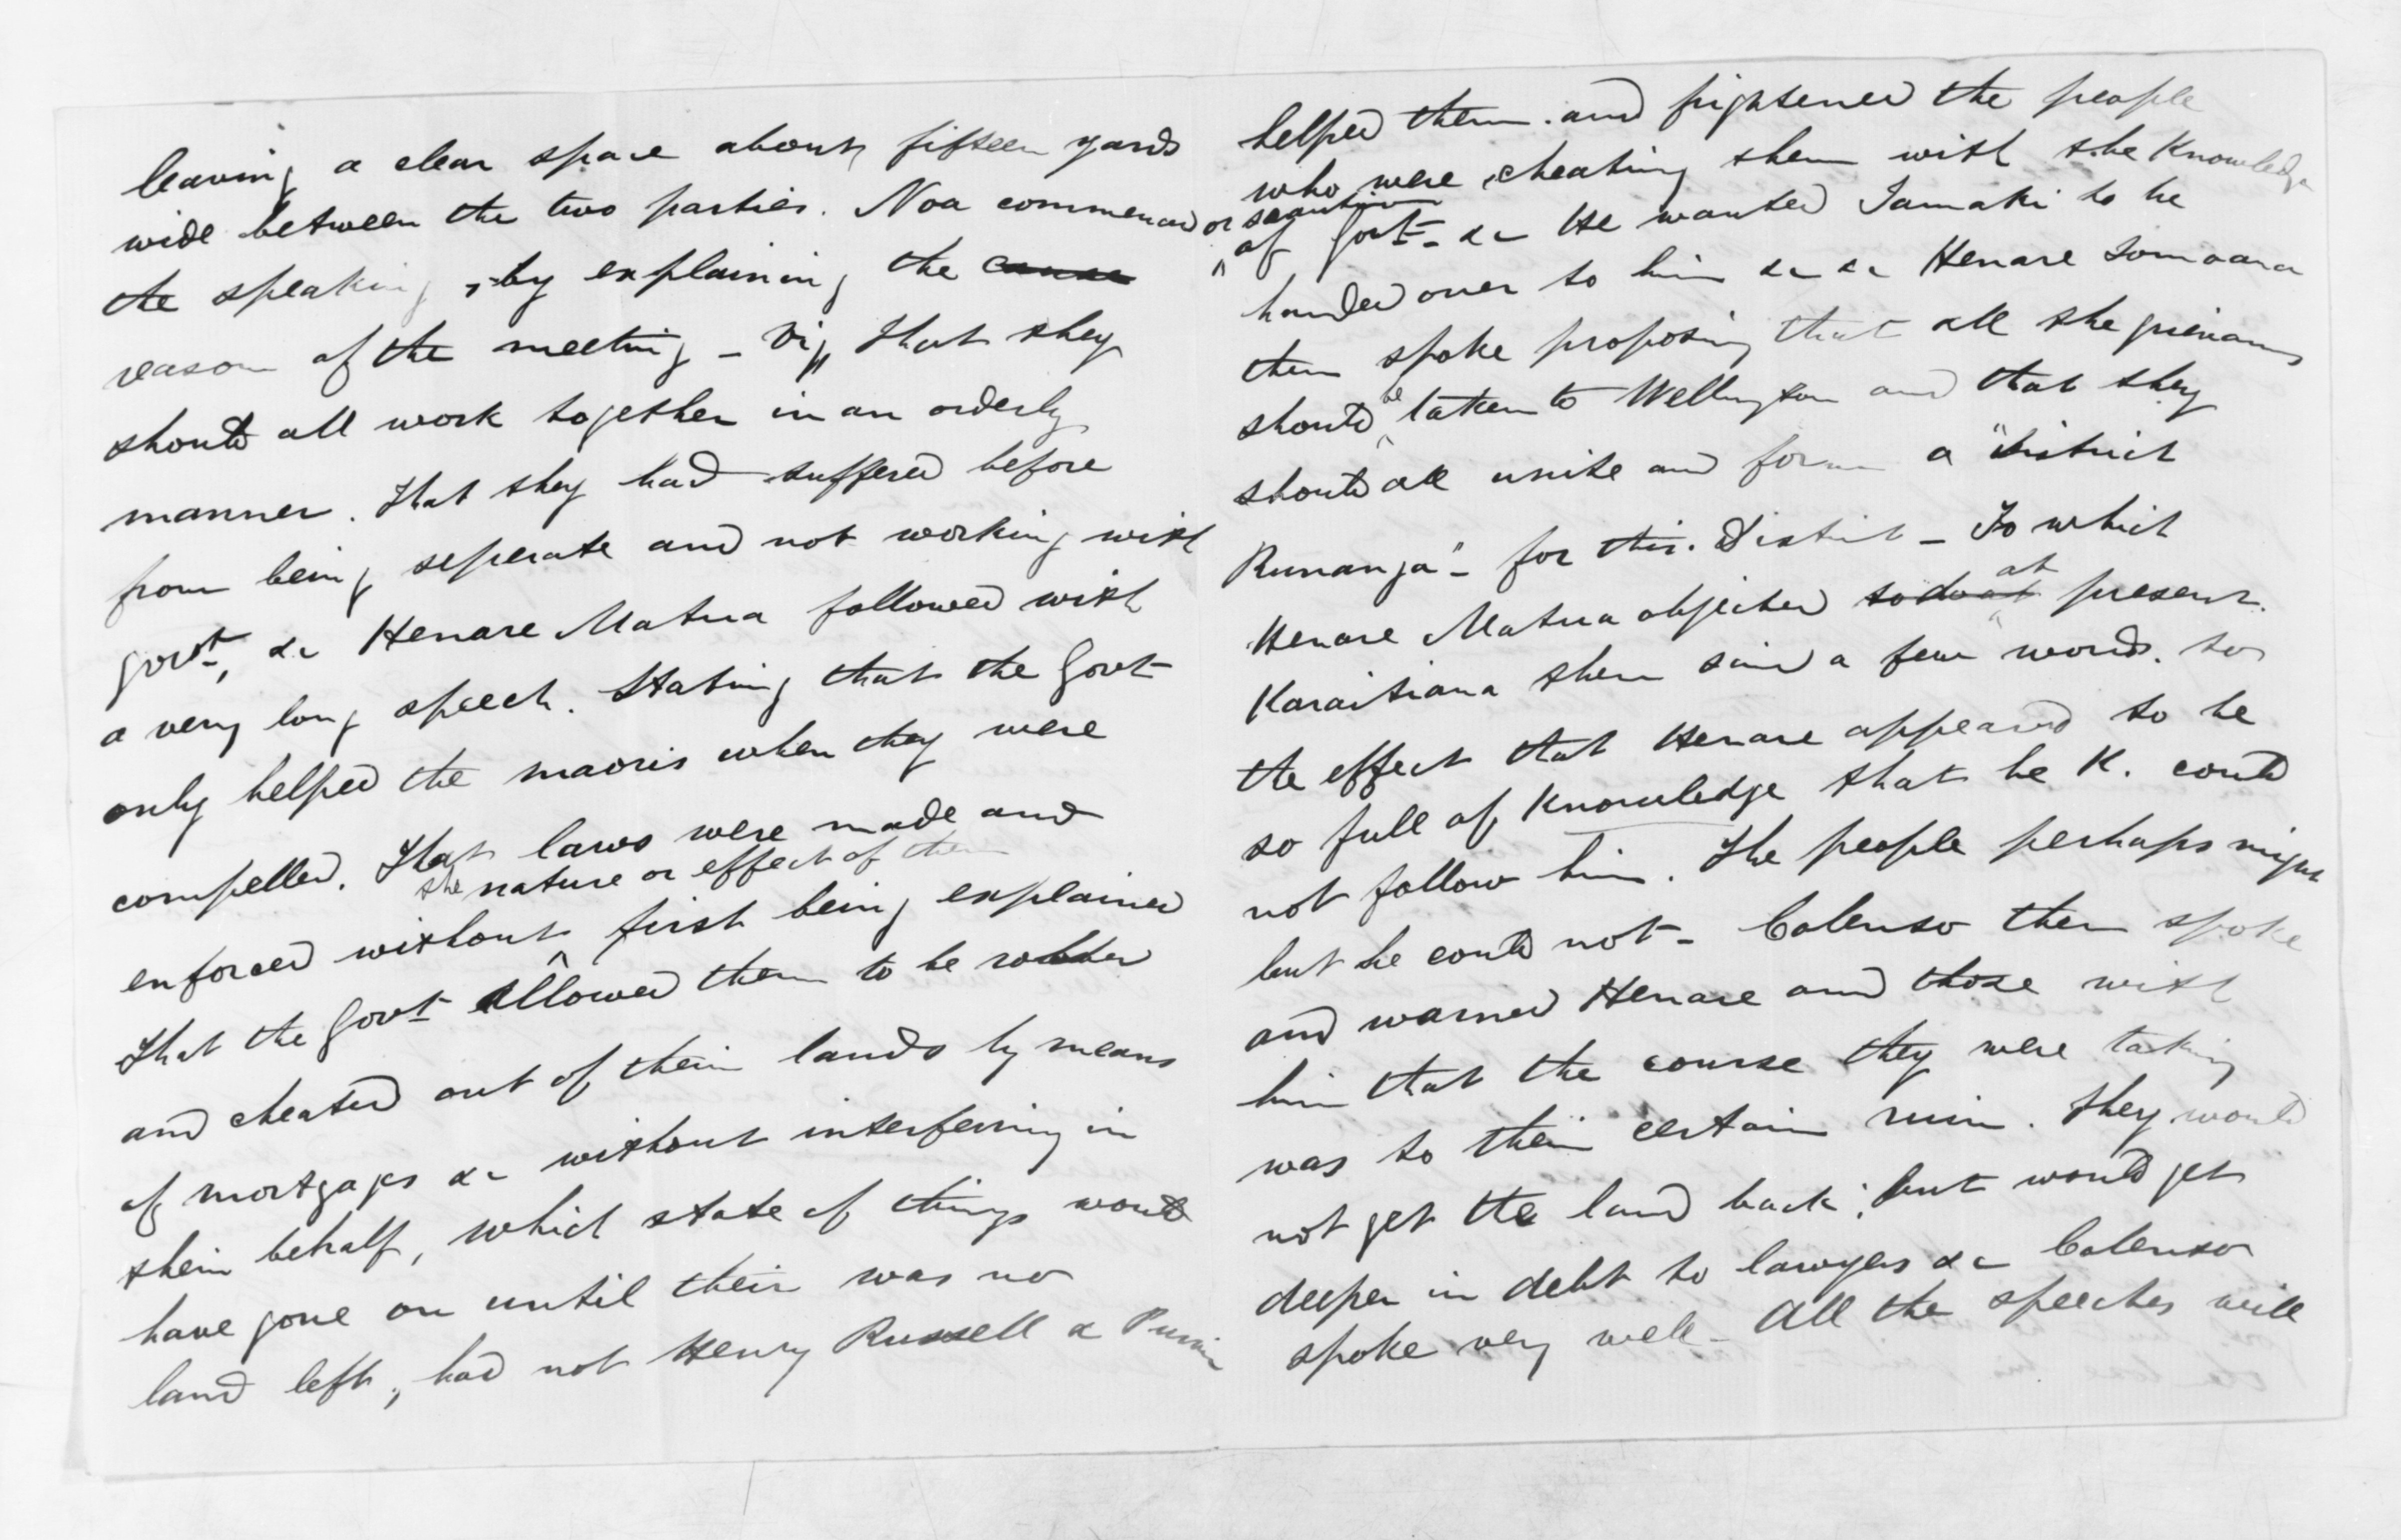 leaving a clear space about fifteen yards
wide between the two parties. Noa commenced
the speaking, by explaining the cause
reason of the meeting – Viz, that they
should all work together in an orderly
manner. That they had suffered before
from being seperate and not working with
govt, &c Henare Matua followed with
a very long speech. Stating that the Govt
only helped the maoris when they were
compelled. That laws were made and
the nature or effect of them
enforced without first being explained
That the Govt allowed them to be robbed
and cheated out of their lands by means
of mortgages &c without interfering in
their behalf, which state of things would
have gone on until their was no
land left, had not Henry Russell &
helped them. and frightened the people
who were cheating them with the Knowledge
or sanction
of Govt – &c He wanted Tamaki to be
handed over to him &c &c Henare Tomoana
then spoke proposing that all the grievances
should be taken to Wellington and that they
should all unite and form a "district
Runanga" – for this District – To which
at
Henare Matua objected to do at present.
Karaitiana then said a few words. to
the effect that Henare appeared to be
so full of Knowledge that he K. could
not follow him. The people perhaps might
but he could not – Colenso then spoke
and warned Henare and those with
him that the course they were taking
was to their certain ruin. They would
not get the land back; but would get
deeper in debt to lawyers &c Colenso
spoke very well – All the speeches will